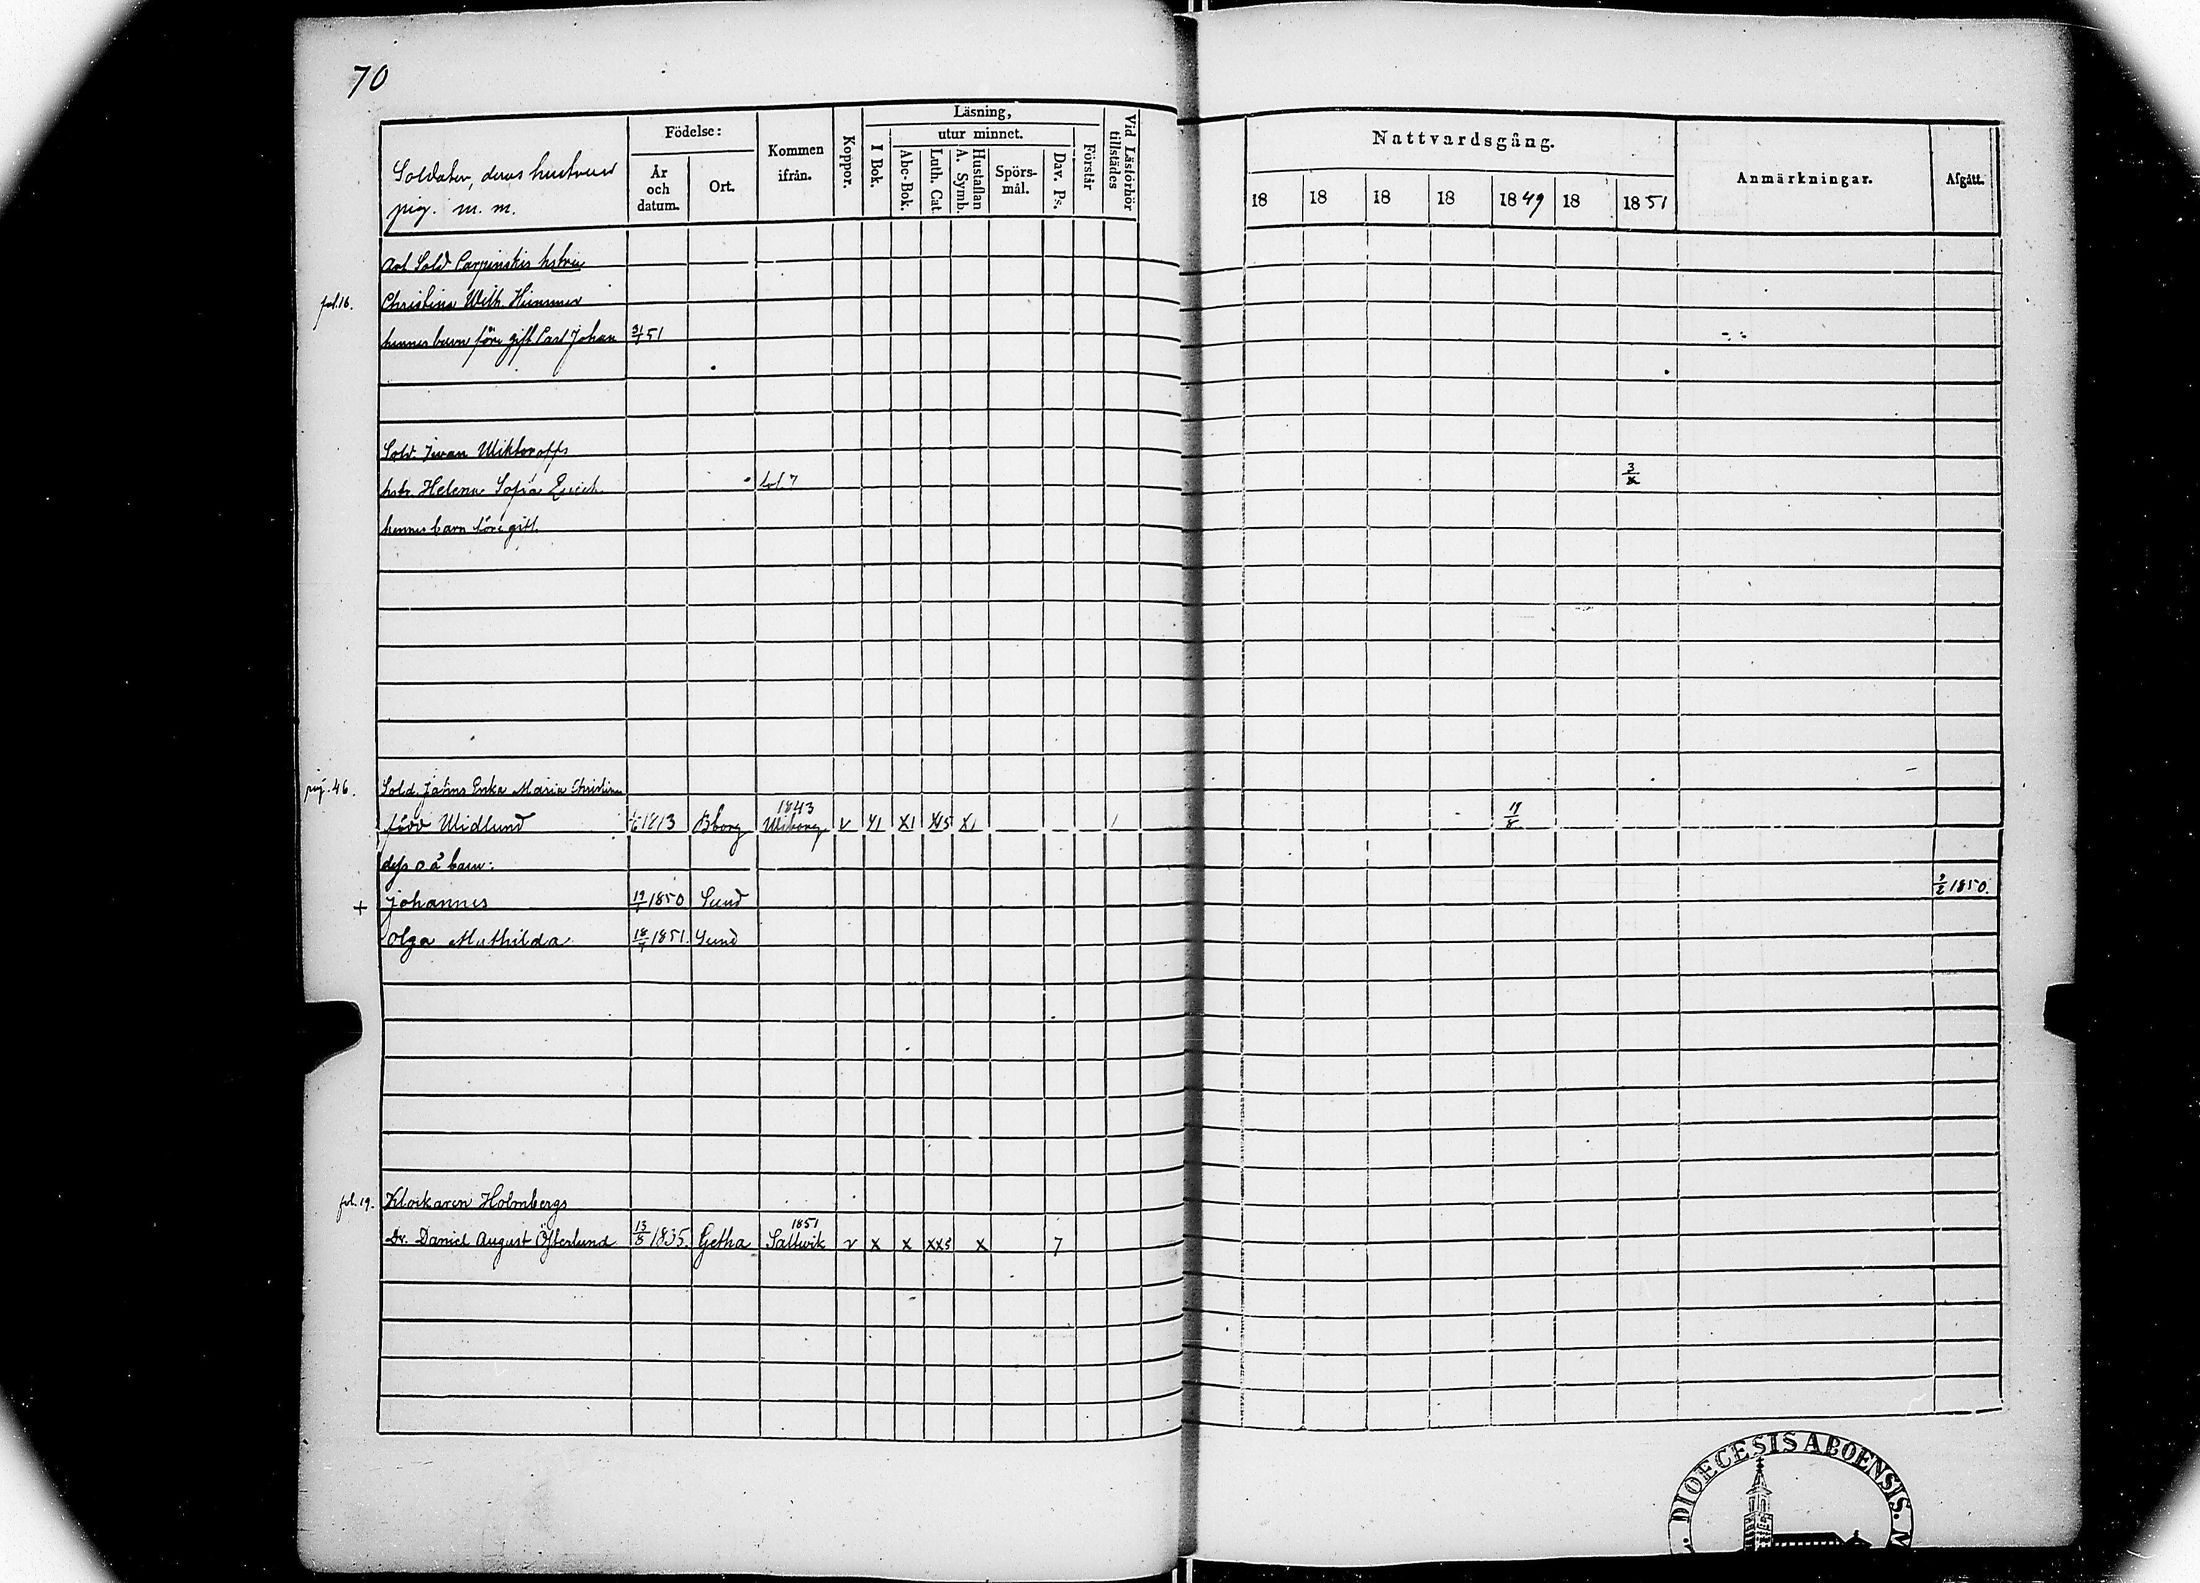 70
Soldater, deras hustrur
pig. m. m.
Födelse:
År
och
datum.
Ort.
Kommen
ifrån.
Koppor.
Läsning,
I Bok.
utur minnet.
Abc-Bok.
Luth. Cat.
Hustaflan
A. Symb.
Spörs-
mål.
Dav. Ps.
Förstår
Vid Läsförhör
tillstädes
Nattvardsgång.
18 18 18 18 1849 18 1851
Anmärkningar.
Afgått.
Art Sold Carpinskis hstru
fol.16. Christina Wilh.
hennes barn före gift Carl Johan 31/1 51
Sold. Iwan Wiktoroffs
hstr. Helena Sofia fol 7 3/8
hennes barn före gift.
pig. 46. Sold. Jahns Enka Maria Christina
född Widlund 1813 Bborg 1843 Wiborg v X1 X1 X15 X1 1
dess o. ä. barn:
+ Johannes 19/1 1850 Sund 3/2 1850.
Olga Mathilda 18/7 1851. Sund
fol. 19. Klockaren Holmbergs
Dr. Daniel August Österlund 13/8 1835. Getha 1851 Saltwik v x x xx5 x 7
DIOECESIS ABOENSIS.